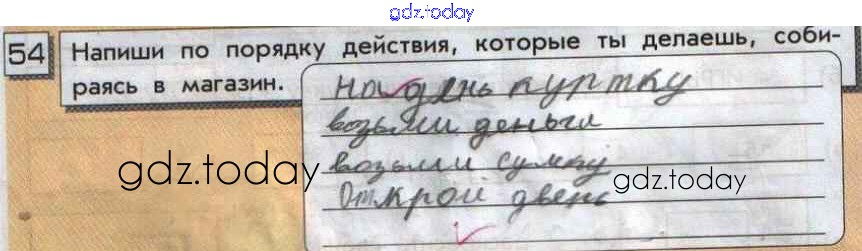 gdz.today
54 Напиши по порядку действия, которые ты делаешь, соби-
раясь в магазин.
Надень куртку
возьми деньги
возьми сумку
gdz.today
gdz.today
Открой дверь